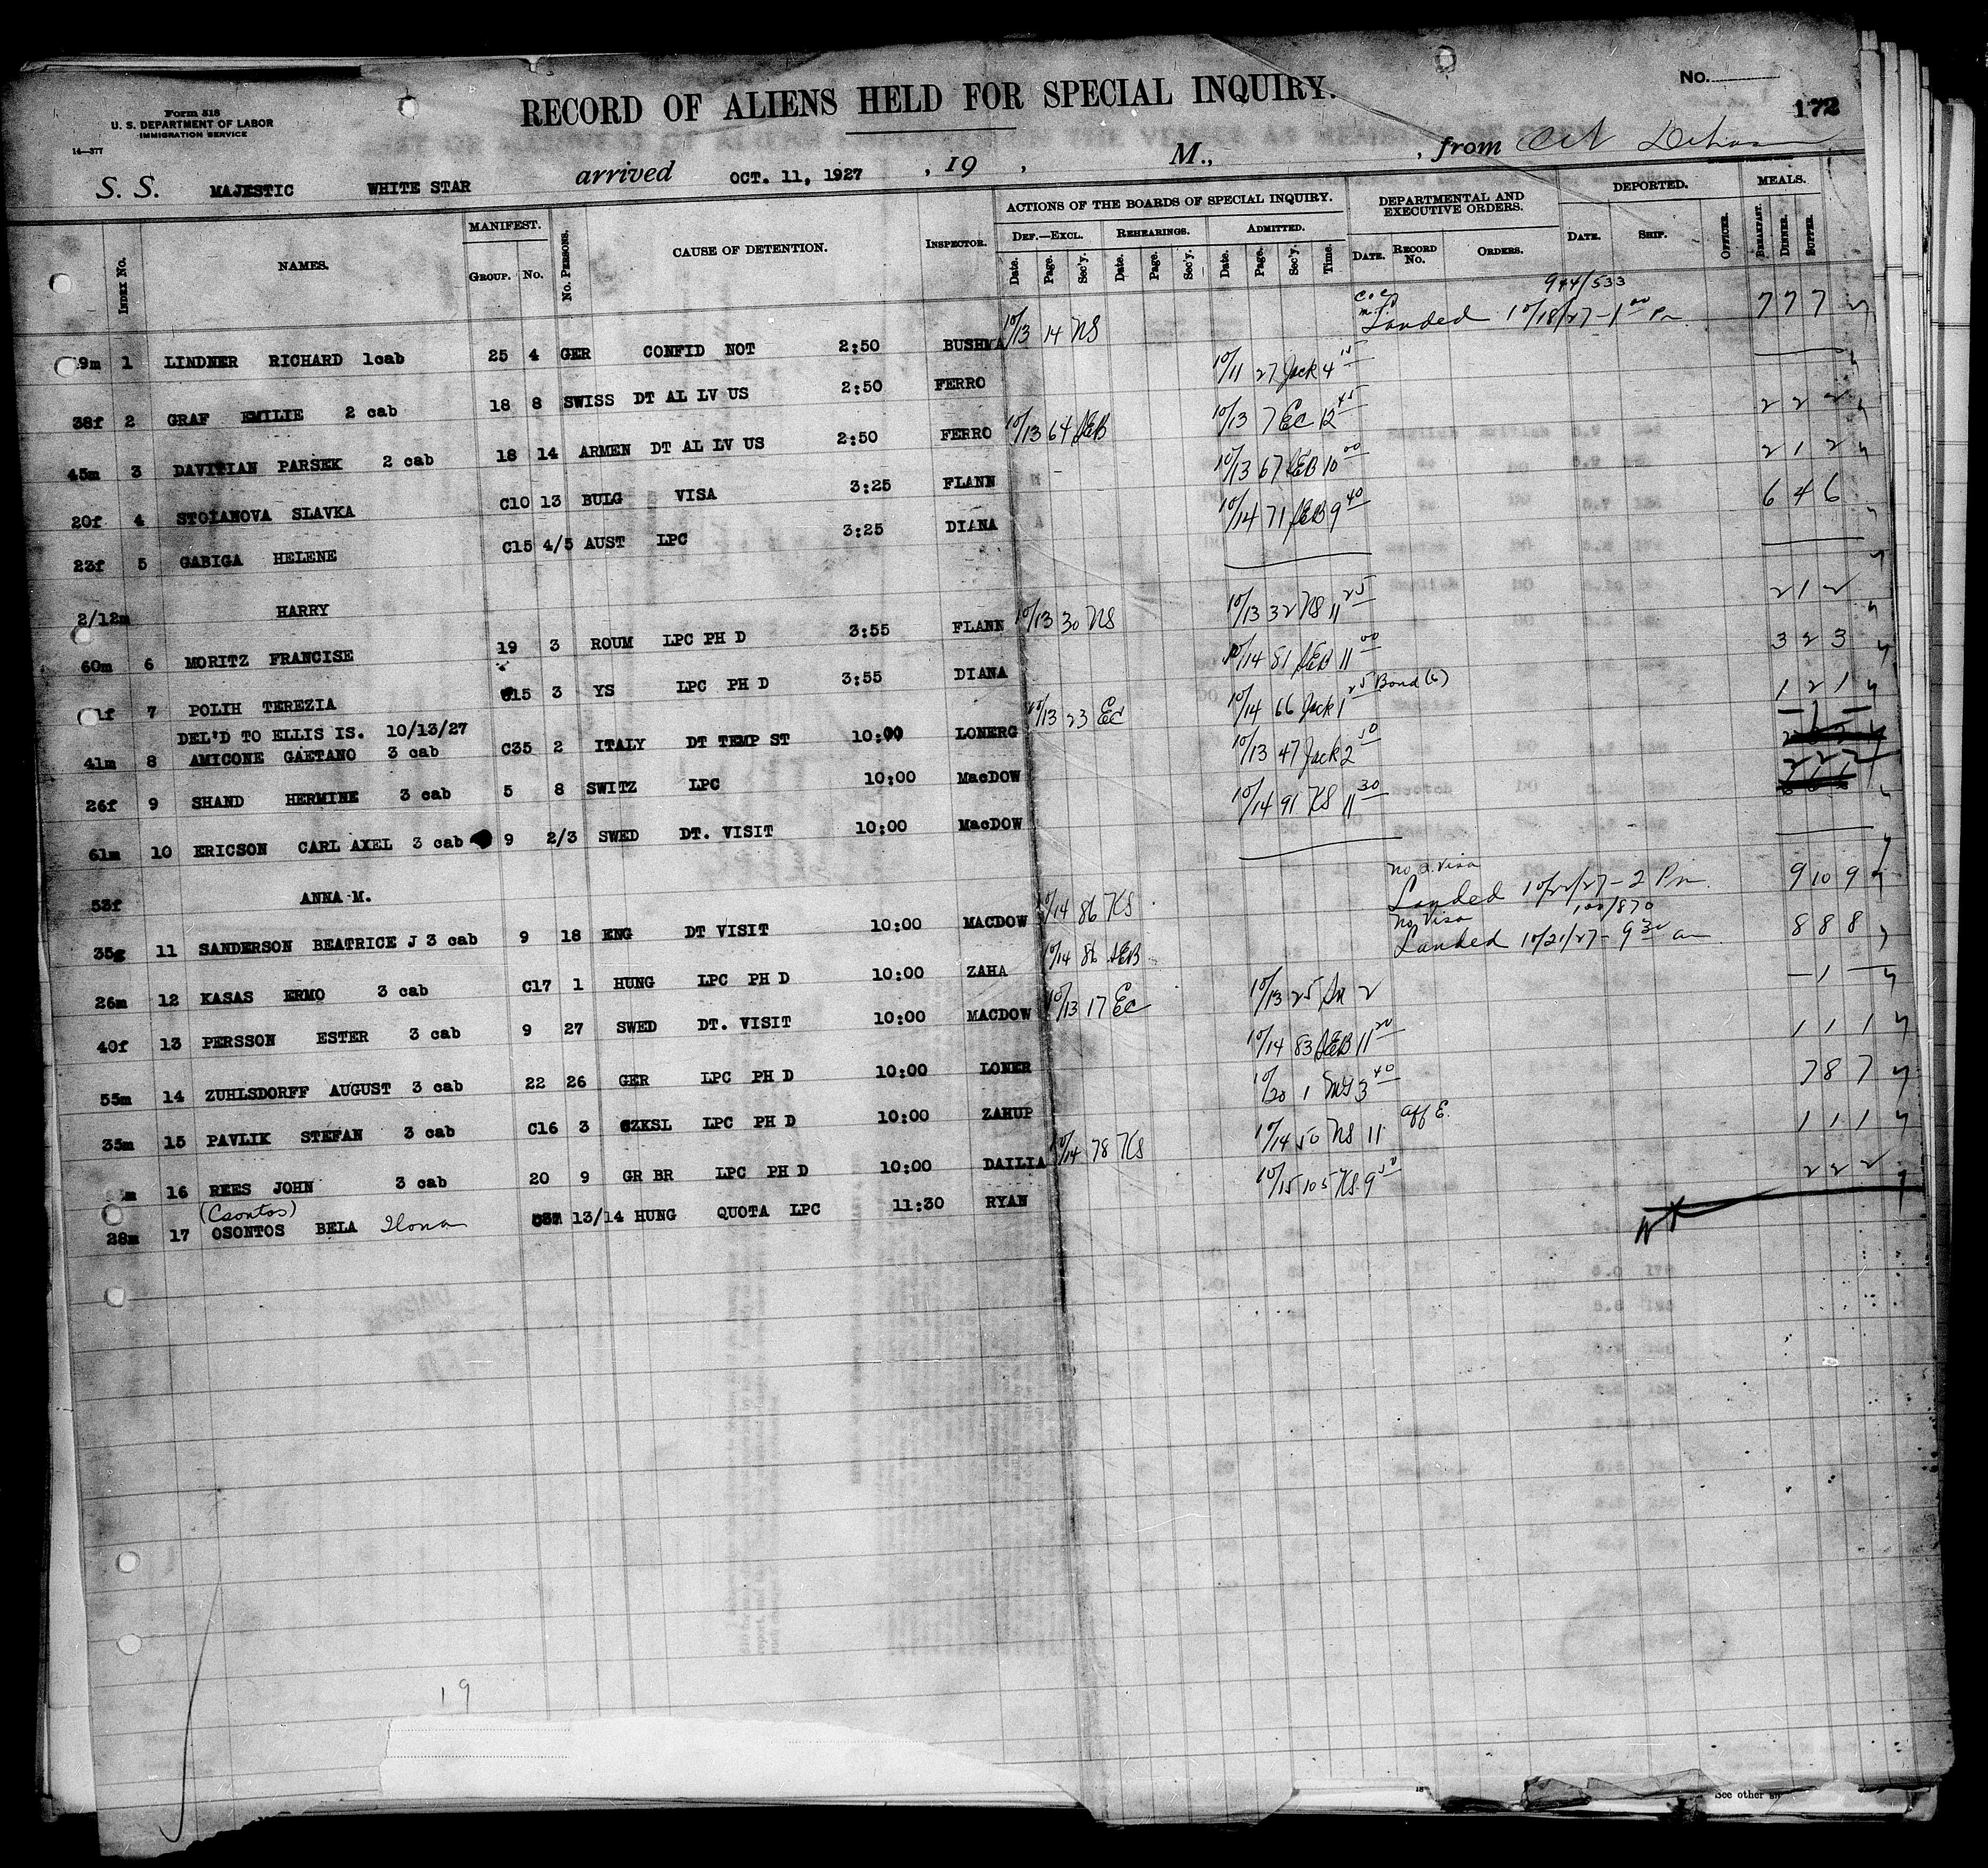 Form 518
U. S. DEPARTMENT OF LABOR
IMMIGRATION SERVICE
14—377
RECORD OF ALIENS HELD FOR SPECIAL INQUIRY.
No.
172
S. S. MAJESTIC WHITE STAR arrived OCT. 11, 1927 , 19 , M., , from
INDEX No. NAMES. MANIFEST. GROUP. No. No. PERSONS. CAUSE OF DETENTION. INSPECTOR. ACTIONS OF THE BOARDS OF SPECIAL INQUIRY. DEF.—EXCL. Date. Page. Sec'y. REHEARINGS. Date. Page. Sec'y. ADMITTED. Date. Page. Sec'y. Time. DEPARTMENTAL AND EXECUTIVE ORDERS. DATE. RECORD No. ORDERS. DEPORTED. DATE. SHIP. OFFICER. MEALS. BREAKFAST. DINNER. SUPPER.
9m 1 LINDNER RICHARD 1cab 25 4 GER CONFID NOT 2:50 BUSHMA 10/13 14 NS Landed 10/18/27 - 1 00 Pm 944/533 7 7 7
38f 2 GRAF EMILIE 2 cab 18 8 SWISS DT AL LV US 2:50 FERRO 10/11 27 Jack 4 15
45m 3 DAVITIAN PARSEK 2 cab 18 14 ARMEN DT AL LV US 2:50 FERRO 10/13 64 AEB 10/13 7 EC 12 45 2 2 2
20f 4 STOIANOVA SLAVKA C10 13 BULG VISA 3:25 FLANN 10/13 67 AEB 10 00 2 1 2
23f 5 GABIGA HELENE C15 4/5 AUST LPC 3:25 DIANA 10/14 71 AEB 9 40 6 4 6
2/12m HARRY
60m 6 MORITZ FRANCISE 19 3 ROUM LPC PH D 3:55 FLANN 10/13 30 NS 10/13 32 NS 11 25 2 1 2
1f 7 POLIH TEREZIA C15 3 YS LPC PH D 3:55 DIANA 10/14 81 AEB 11 00 3 2 3
DEL'D TO ELLIS IS. 10/13/27
41m 8 AMICONE GAETANO 3 cab C35 2 ITALY DT TEMP ST 10:00 LONERG 10/13 23 EC 10/14 66 Jack 1 25 Bond (6) 1 2 1
26f 9 SHAND HERMINE 3 cab 5 8 SWITZ LPC 10:00 MacDOW 10/13 47 Jack 2 50 — 1 —
61m 10 ERICSON CARL AXEL 3 cab 9 2/3 SWED DT. VISIT 10:00 MacDOW 10/14 91 KS 11 30 2 2 2
53f ANNA M.
35g 11 SANDERSON BEATRICE J 3 cab 9 18 ENG DT VISIT 10:00 MACDOW 10/14 86 KS Landed 10/22/27 - 2 Pm. 9 10 9
26m 12 KASAS ERMO 3 cab C17 1 HUNG LPC PH D 10:00 ZAHA 10/14 86 AEB No Visa Landed 10/21/27 - 9 30 am 100/870 8 8 8
40f 13 PERSSON ESTER 3 cab 9 27 SWED DT. VISIT 10:00 MACDOW 10/13 17 EC 10/13 25 2 — 1 —
55m 14 ZUHLSDORFF AUGUST 3 cab 22 26 GER LPC PH D 10:00 LONER 10/14 83 AEB 11 20 1 1 1
35m 15 PAVLIK STEFAN 3 cab C16 3 CZKSL LPC PH D 10:00 ZAHUP 10/20 1 3 40 7 8 7
m 16 REES JOHN 3 cab 20 9 GR BR LPC PH D 10:00 DAILIA 10/14 78 KS 10/14 50 NS 11 aff E. 1 1 1
(Csontos)
28m 17 OSONTOS BELA Ilona 13/14 HUNG QUOTA LPC 11:30 RYAN 10/15 105 KS 9 50 2 2 2
19
See other